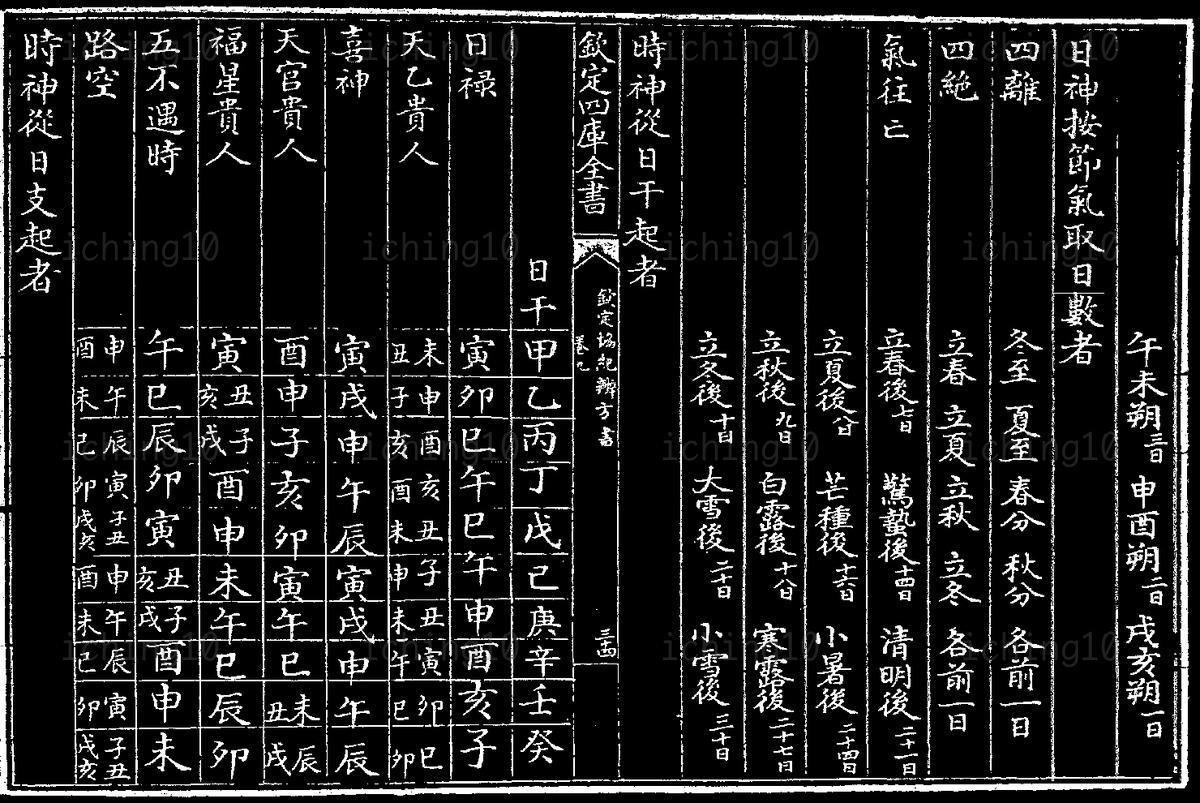 午未朔三日 申酉朔二日 戌亥朔一日
日神按節氣取日數者
四離 冬至 夏至 春分 秋分 各前一日
四絶 立春 立夏 立秋 立冬 各前一日
氣往亡 立春後七日 驚蟄後十四日 清明後二十一日
立夏後八日 芒種後十六日 小暑後二十四日
立秋後九日 白露後十八日 寒露後二十七日
立冬後十日 大雪後二十日 小雪後三十日
時神從日干起者
欽定四庫全書
欽定協紀辨方書
卷九
三四
日干 甲 乙 丙 丁 戊 己 庚 辛 壬 癸
日禄 寅 卯 巳 午 巳 午 申 酉 亥 子
天乙貴人 未丑 申子 酉亥 亥酉 丑未 子申 丑未 寅午 卯巳 巳卯
喜神 寅 戌 申 午 辰 寅 戌 申 午 辰
天官貴人 酉 申 子 亥 卯 寅 午 巳 未丑 辰戌
福星貴人 寅 丑亥 子戌 酉 申 未 午 巳 辰 卯
五不遇時 午 巳 辰 卯 寅 丑亥 子戌 酉 申 未
路空 申酉 午未 辰巳 寅卯 子丑戌亥 申酉 午未 辰巳 寅卯 子丑戌亥
時神從日支起者
iching10 iching10 iching10 iching10
iching10 iching10 iching10 iching10
iching10 iching10 iching10 iching10
iching10 iching10 iching10 iching10